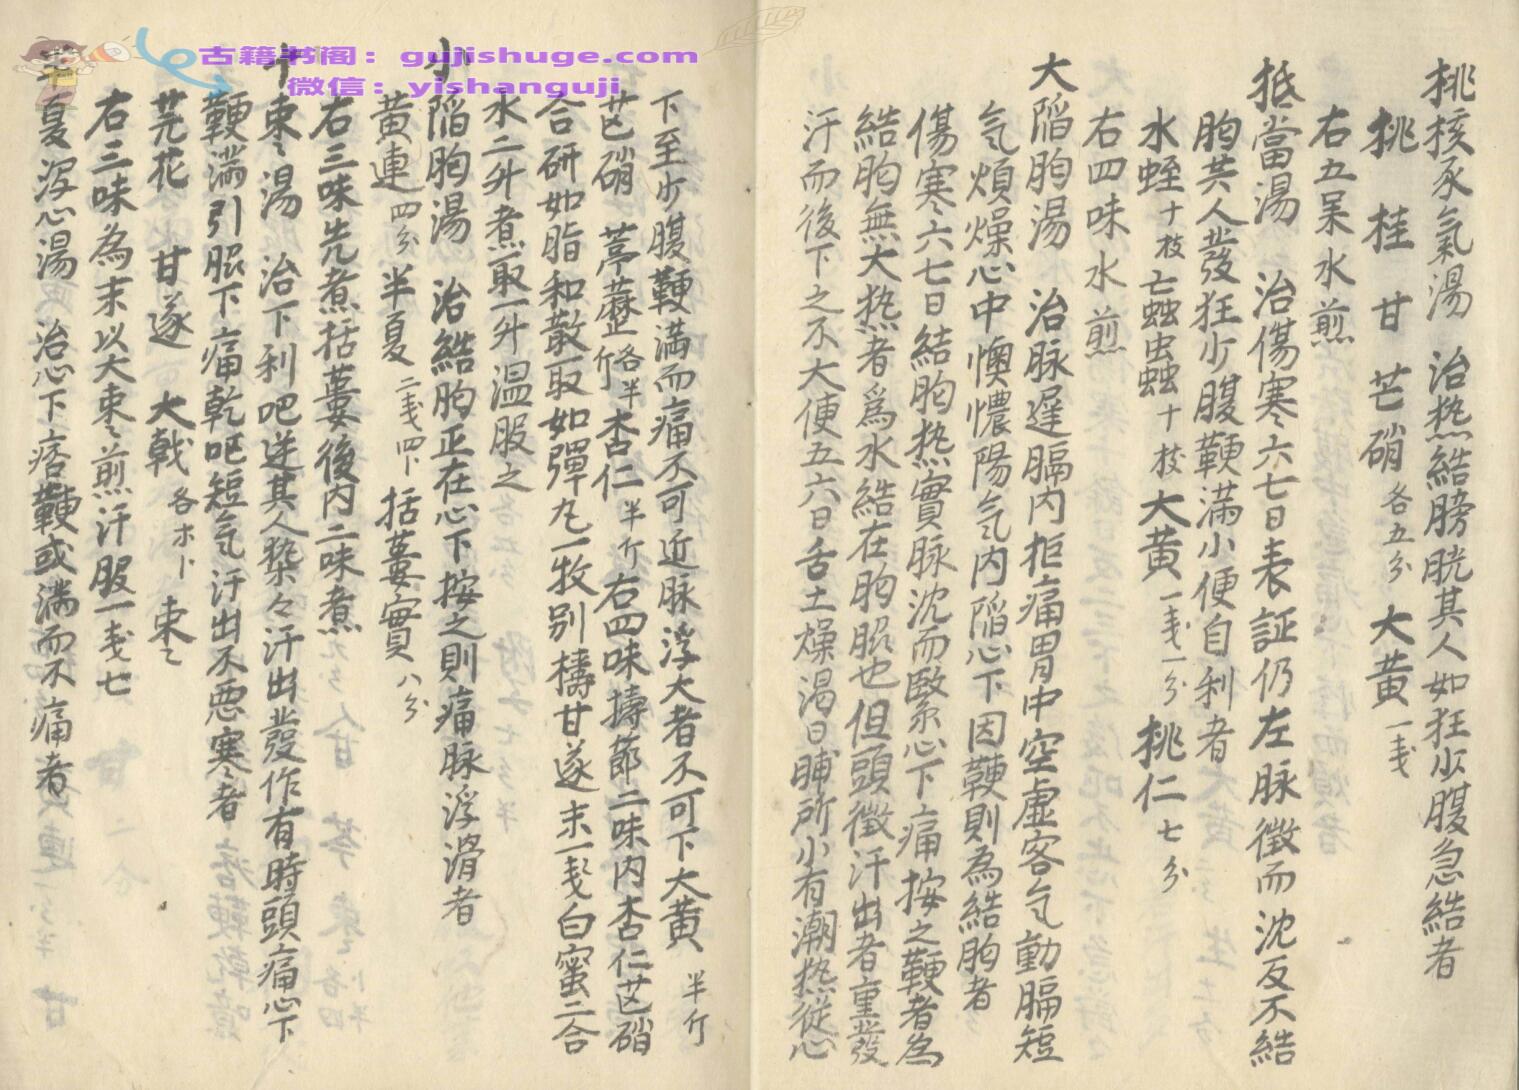 古籍书阁：gujishuge.com
微信：yishanguji
桃核承氣湯　治热結膀胱其人如狂少腹急結者
桃　桂　甘　芒硝各五分　大黄一戋
右五味水煎
抵當湯　治傷寒六七日表証仍在脉微而沈反不結
胸其人發狂少腹鞕满小便自利者
水蛭十枝　亡蟲虫蟲十枝　大黄一戋一分　桃仁七分
右四味水煎
大陷胸湯　治脉遲膈内拒痛胃中空虚客气動膈短
气煩燥心中懊憹陽气内陷心下因鞕則為結胸者
傷寒六七日結胸热實脉沈而緊心下痛按之鞕者為
結胸無大热者爲水結在胸脇也但頭微汗出者重發
汗而後下之不大便五六日舌上燥渴日晡所小有潮热從心
下至少腹鞕满而痛不可近脉浮大者不可下大黄半斤
芒硝　葶藶各半斤　杏仁半斤　右四味擣篩二味内杏仁芒硝
合研如脂和散取如彈丸一枚别擣甘遂末一戋白蜜二合
水二升煮取一升温服之
小陷胸湯　治結胸正在心下按之則痛脉浮滑者
黄連四分　半夏二戋四卜　括蔞實八分
右三味先煮括蔞後内二味煮
十枣湯　治下利呕逆其人漐々汗出發作有時頭痛心下
鞕满引脇下痛乾呕短气汗出不悪寒者
芫花　甘遂　大戟各ホト　枣
右三味為末以大枣煎汗服一戋七
半夏泻心湯　治心下痞鞕或满而不痛者